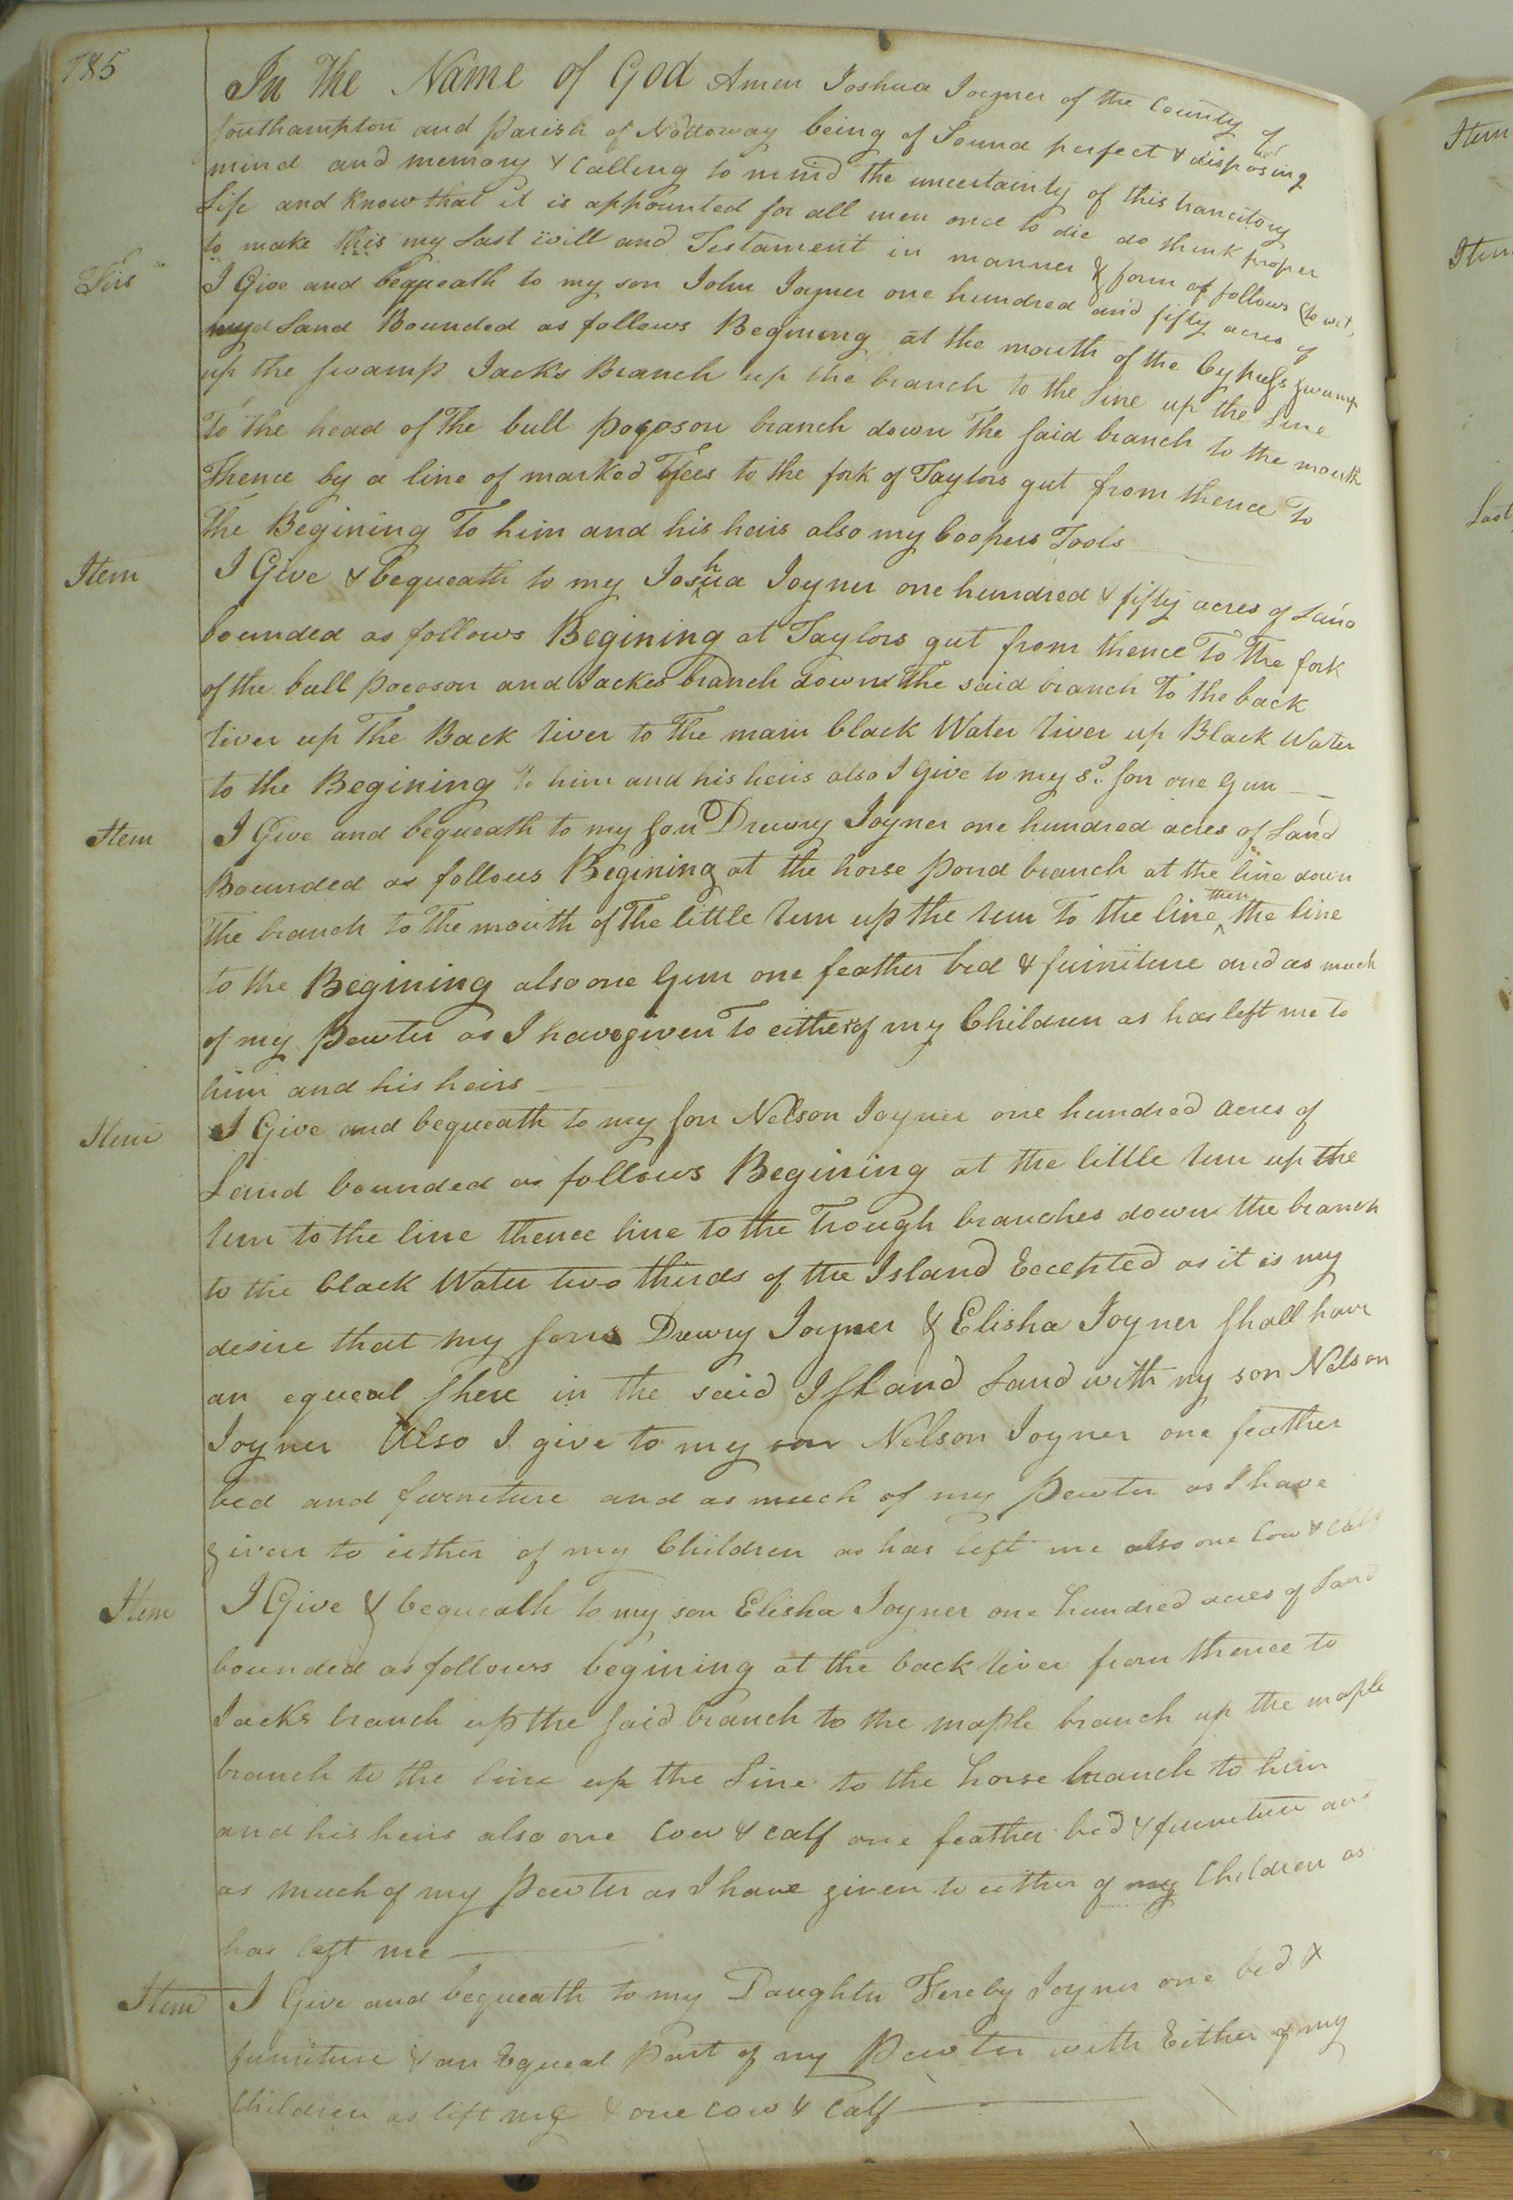 785
In The Name of God Amen Joshua Joyner of the County of
Southampton and Parish of Nottoway being of Sound perfect & disposing
mind and memory & Calling to mind the uncertainty of this trancitory
Life and know that it is appointed for all men once to die do think proper
to make this my Last will and Testament in manner & form as follows (to wit,
Firs I Give and bequeath to my son John Joyner one hundred and fifty acres of
my Land Bounded as follows Begining at the mouth of the Cypress swamp
up the swamp Jacks Branch up the branch to the Line up the Line
To The head of The bull Pocoson branch down The said branch to the mouth
Thence by a line of marked Trees to the fork of Taylors gut from thence To
The Begining To him and his heirs also my Coopers Tools
Item I Give & bequeath to my Joshua Joyner one hundred & fifty acres of Land
bounded as follows Begining at Taylors gut from thence To The fork
of the bull Pocoson and Jackes branch down The said branch To the back
river up The Back river to The main black Water river up Black Water
to the Begining To him and his heirs also I Give to my sd. son one Gun
Item I Give and bequeath to my son Drewry Joyner one hundred acres of Land
Bounded as follows Begining at the horse Pond branch at the line down
The branch to The mouth of The little run up the run To the line then the line
to the Begining also one Gun one feather bed & furniture and as much
of my Pewter as I have given To either of my Children as has left me to
him and his heirs
Item I Give and bequeath to my son Nelson Joyner one hundred acres of
Land bounded as follows Begining at the little run up the
run to the line thence line to the Trough branches down the branch
to the black Water two thirds of the Island Eccepted as it is my
desire that my sons Drewry Joyner & Elisha Joyner shall have
an equeal shere in the said Island Land with my son Nelson
Joyner Also I give to my son Nelson Joyner one feather
bed and furneture and as much of my Pewter as I have
given to either of my Children as has left me also one Cow & Calf
Item I Give & bequeath to my son Elisha Joyner one hundred acres of Land
bounded as follows begining at the back river from thence to
Jacks branch up the said branch to the maple branch up the maple
branch to the line up the Line to the horse branch to him
and his heirs also one Cow & Calf one feather bed & furneture and
as much of my Pewter as I have given to either of my Children as
has left me
Item I Give and bequeath to my Daughter Fereby Joyner one bed &
furniture & an Equeal Part of my Pewter with Either of my
Children as left me & one Cow & Calf
Item
Item